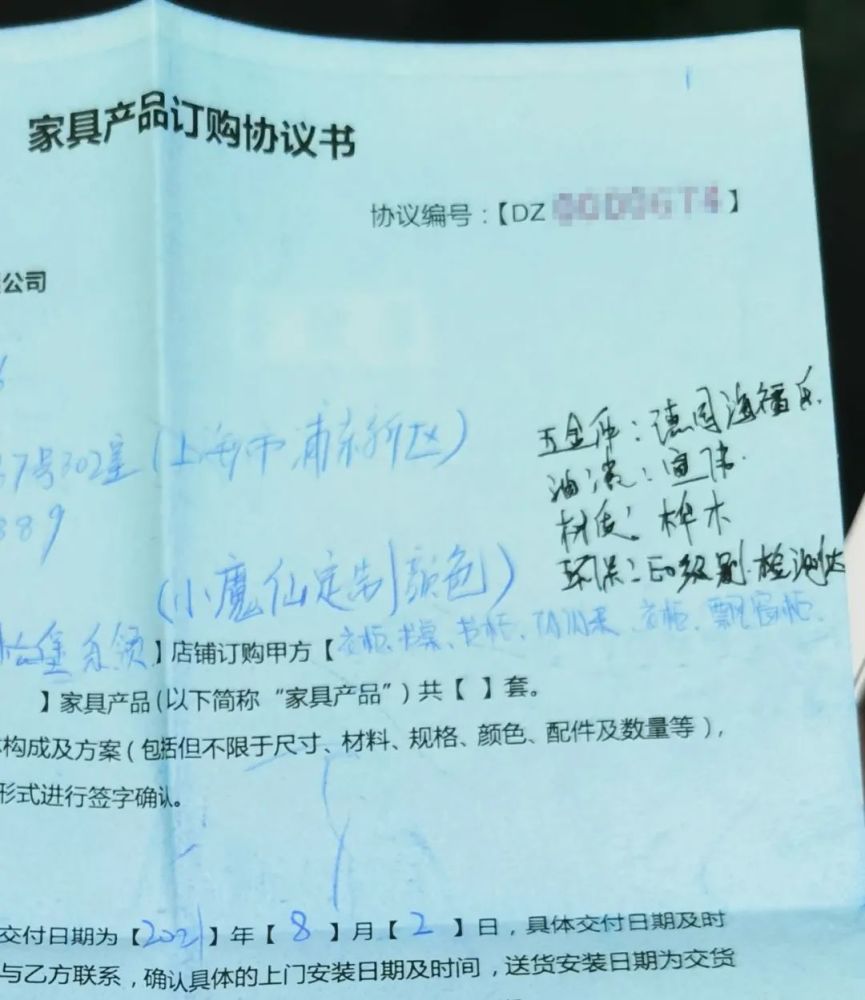 家具产品订购协议书
协议编号：【DZ 】
公司
37号302室（上海市浦东新区）
889
五金件：德国海福乐
油漆：宣伟.
材质：桦木
环保：E0级别.检测达
（小魔仙定制颜色）
】店铺订购甲方【衣柜、书桌、书柜、 衣柜、飘窗柜.
】家具产品（以下简称“家具产品”）共【 】套。
构成及方案（包括但不限于尺寸、材料、规格、颜色、配件及数量等），
形式进行签字确认。
交付日期为【2021】年【8】月【2】日，具体交付日期及时
与乙方联系，确认具体的上门安装日期及时间，送货安装日期为交货